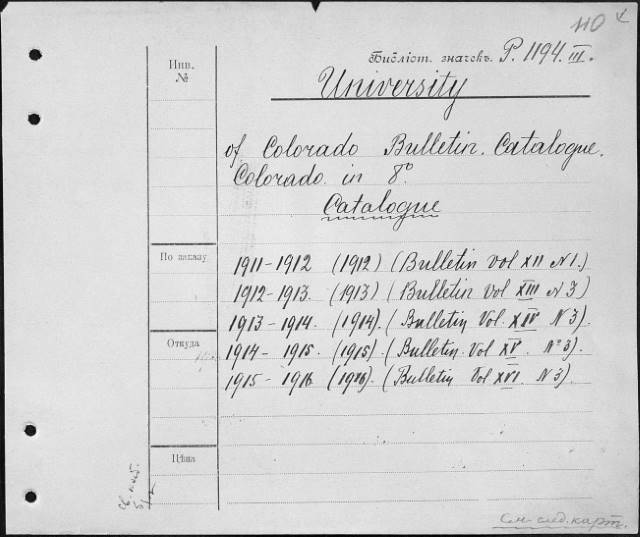 110
Инв.
№
Библіот. значекъ. P. 1194. III.
University
of Colorado Bulletin. Catalogue.
Colorado. in 8°.
Catalogue
По заказу
1911-1912 (1912) (Bulletin Vol XII N 1.)
1912-1913. (1913) (Bulletin Vol XIII N 3)
1913-1914. (1914). (Bulletin Vol. XIV N 3).
Откуда
1914-1915. (1915). (Bulletin. Vol XV. N° 3).
1915-1916 (1916). (Bulletin Vol XVI. N 3).
Цѣна
См. след. карт.